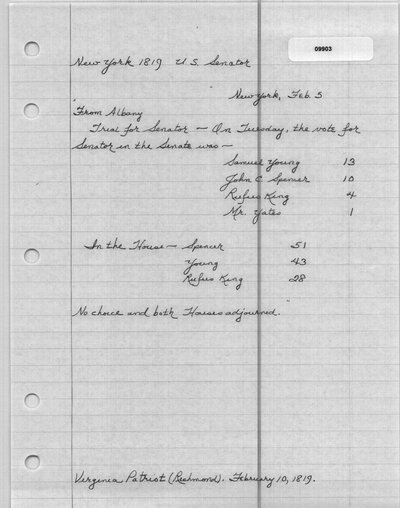 09903
New York 1819 U.S. Senator
New York, Feb. 5
From Albany
Trial for Senator — On Tuesday, the vote for
Senator in the Senate was —
Samuel Young 13
John C Spencer 10
Rufus King 4
Mr. Yates 1
In the House — Spencer 51
Young 43
Rufus King 28
No choice and both Houses adjourned.
Virginia Patriot (Richmond). February 10, 1819.